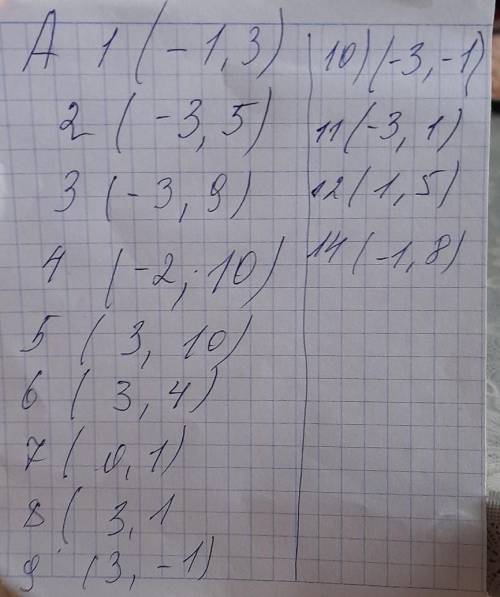 A 1 (-1,3)
2 (-3,5)
3 (-3,9)
4 (-2,10)
5 (3,10)
6 (3,4)
7 (0,1)
8 (3,1
9 (3,-1)
10) (-3,-1)
11 (-3,1)
12 (1,5)
14 (-1,8)